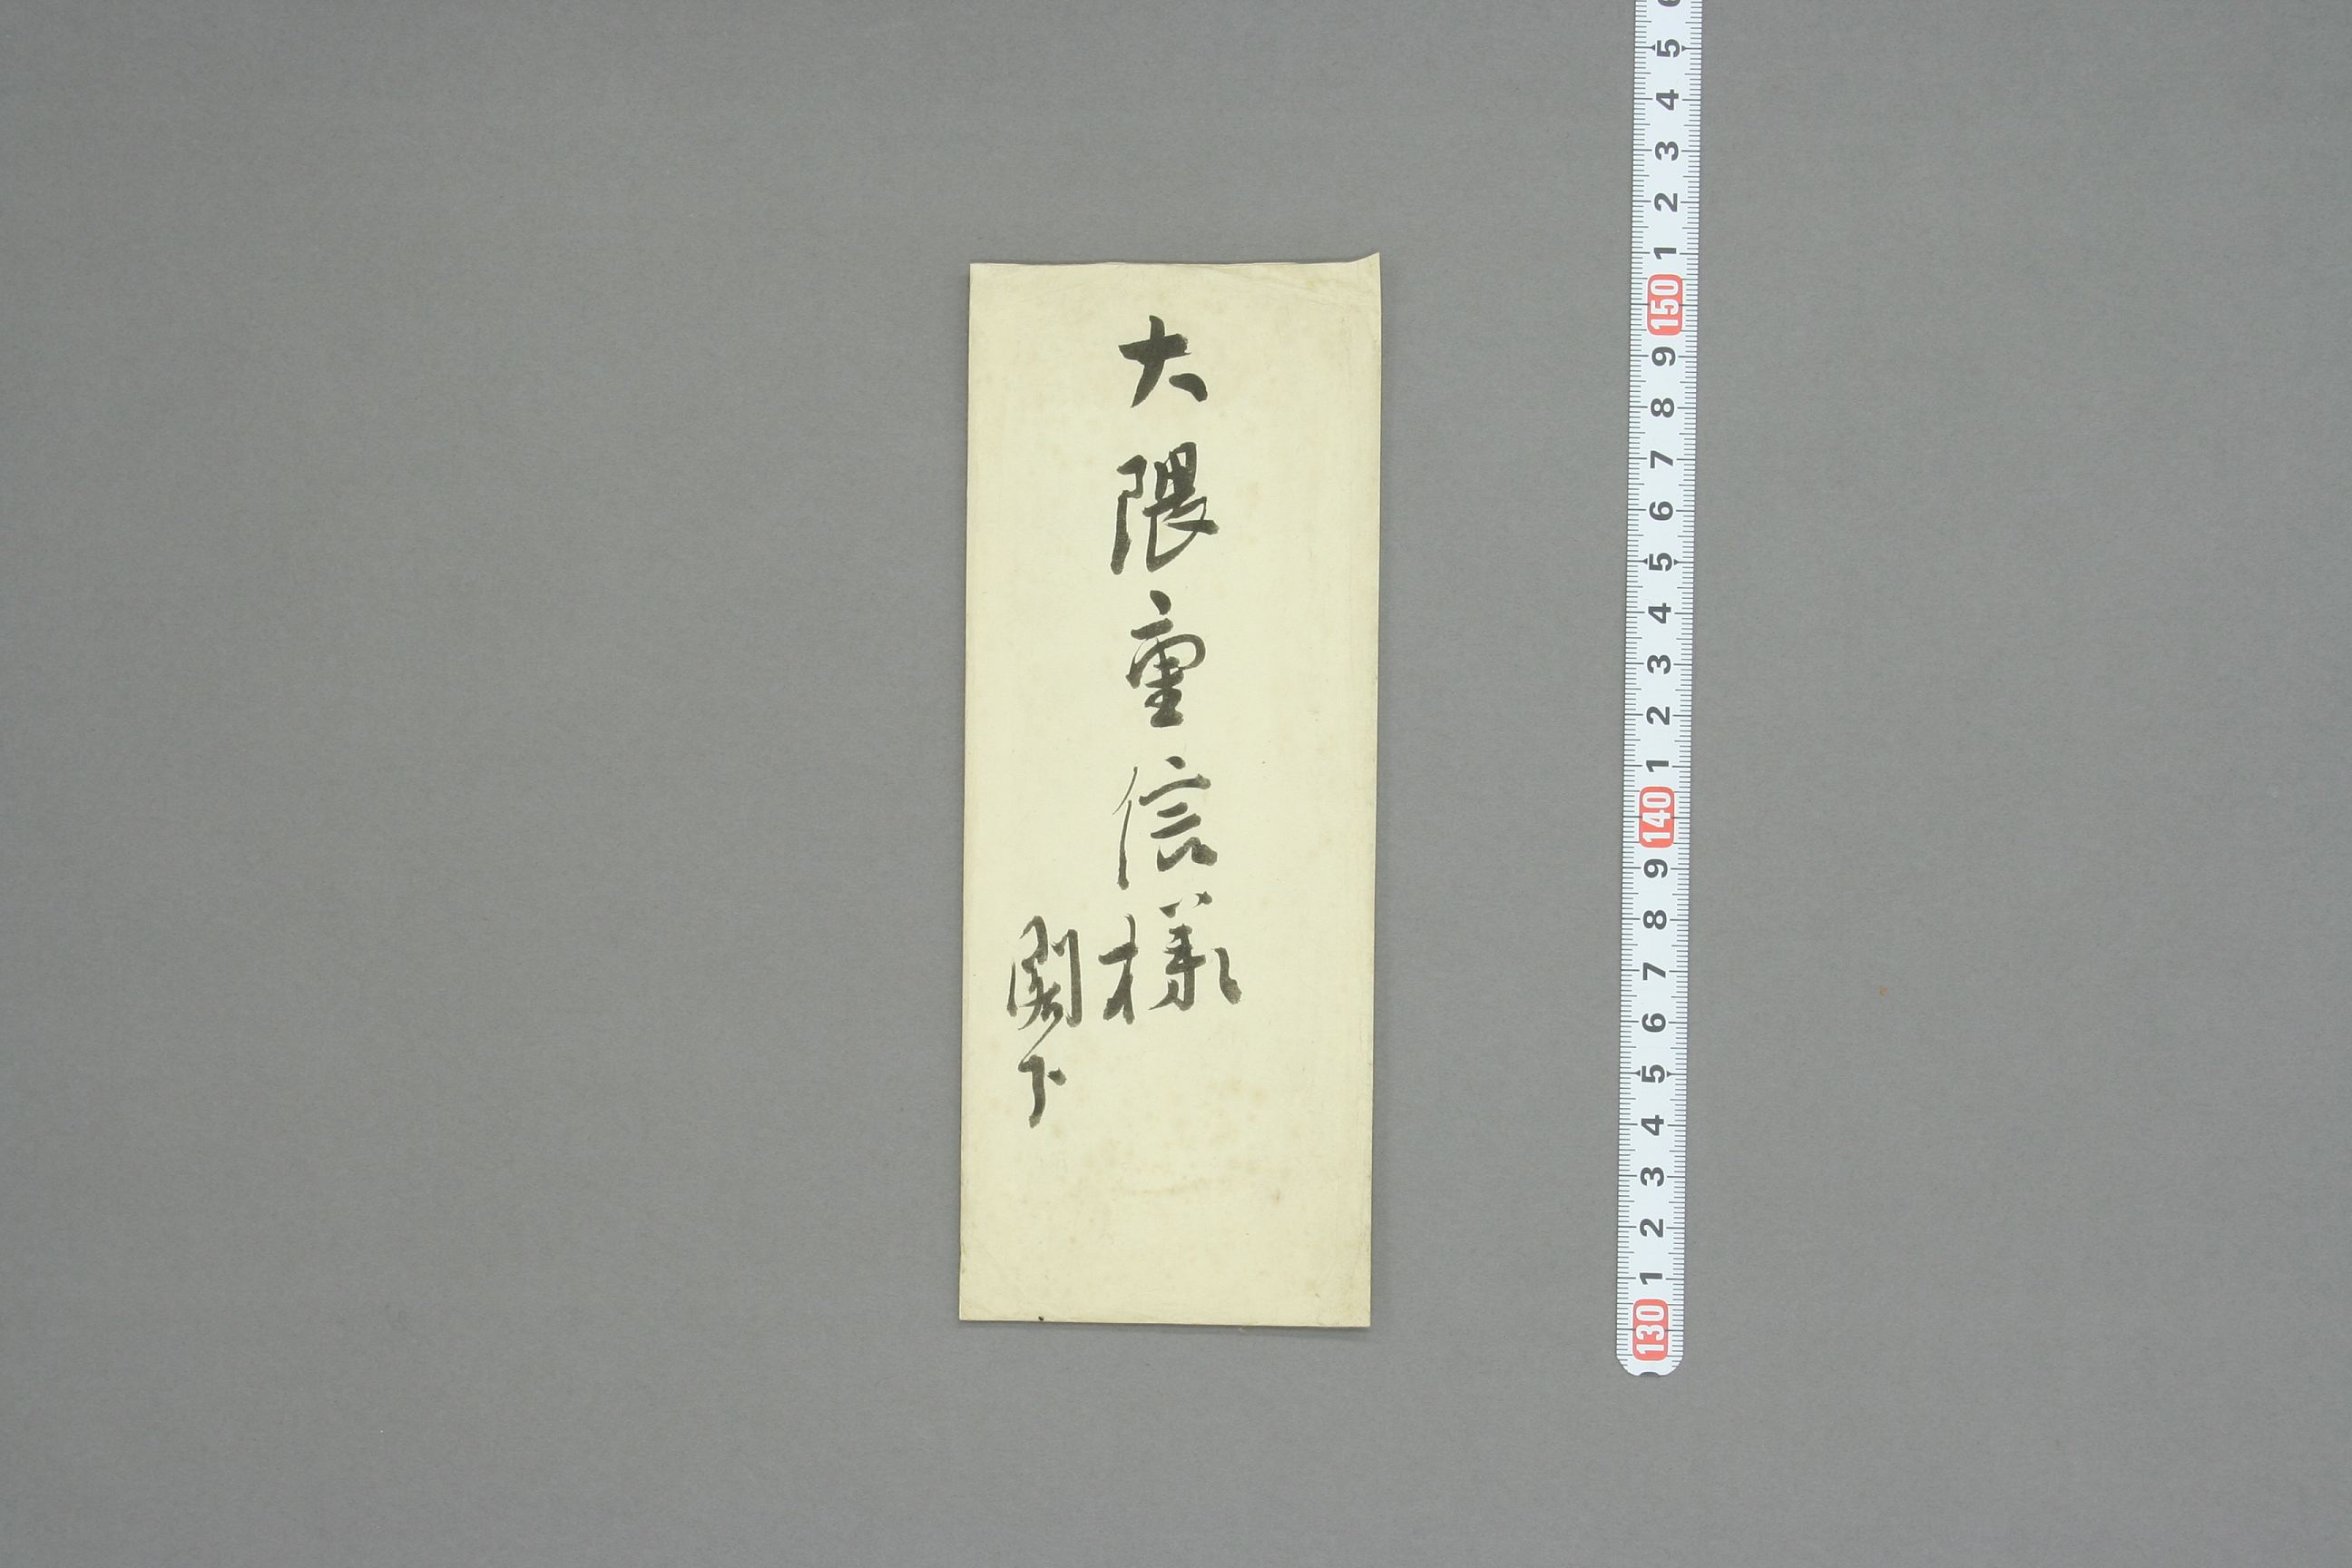 大隈重信様
閣下
6 5 4 3 2 1 150 9 8 7 6 5 4 3 2 1 140 9 8 7 6 5 4 3 2 1 130